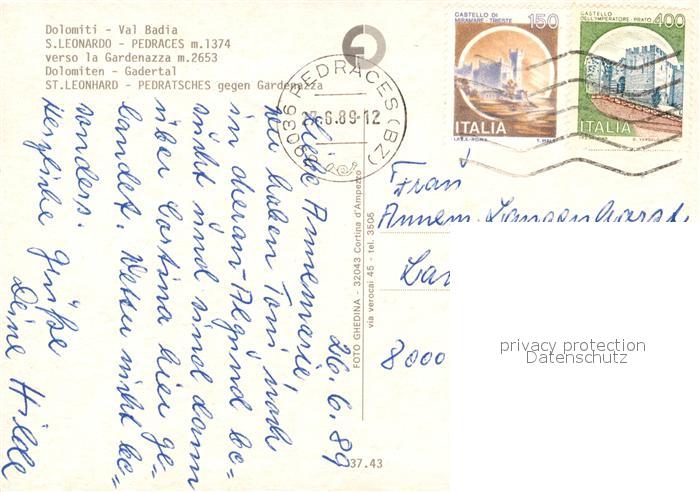 Dolomiti - Val Badia
S.LEONARDO - PEDRACES m.1374
verso la Gardenazza m.2653
Dolomiten - Gadertal
ST.LEONHARD - PEDRATSCHES gegen Gardenazza
39036 PEDRACES (BZ)
6.89-12
CASTELLO DI
MIRAMARE - TRIESTE
150
ITALIA
I.P.Z.S.-ROMA
CASTELLO
DELL'IMPERATORE-PRATO
400
ITALIA
26.6.89
Liebe Annemarie,
wir haben Toni nach
in Meran-Algund be-
sucht und sind dann
über Cortina hier ge-
landet. Wetter nicht be-
sonders.
Herzliche Grüße
Deine Hilde
FOTO GHEDINA - 32043 Cortina d'Ampezzo
via verocai 45 - tel. 3505
37.43
Frau
Annem.
8000
privacy protection
Datenschutz